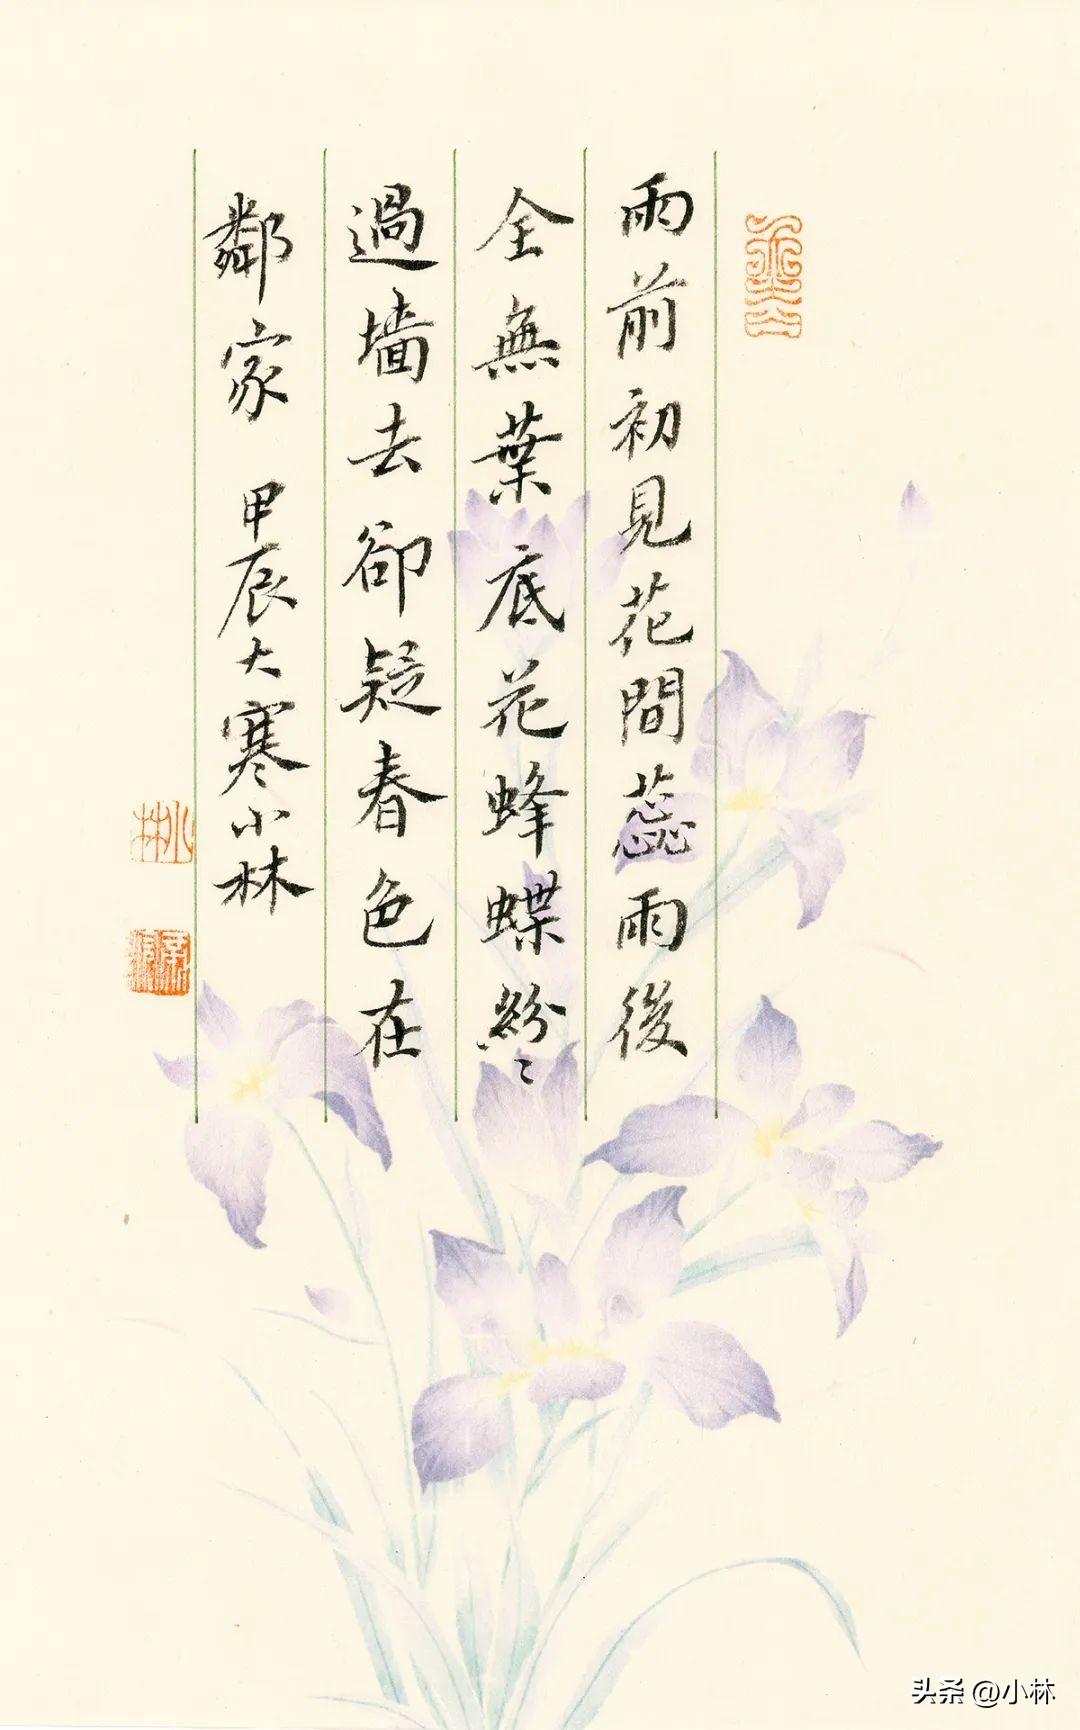 雨前初見花間蕊雨後
全無葉底花蜂蝶紛〻
過墻去卻疑春色在
鄰家 甲辰大寒小林
小林
头条 @小林